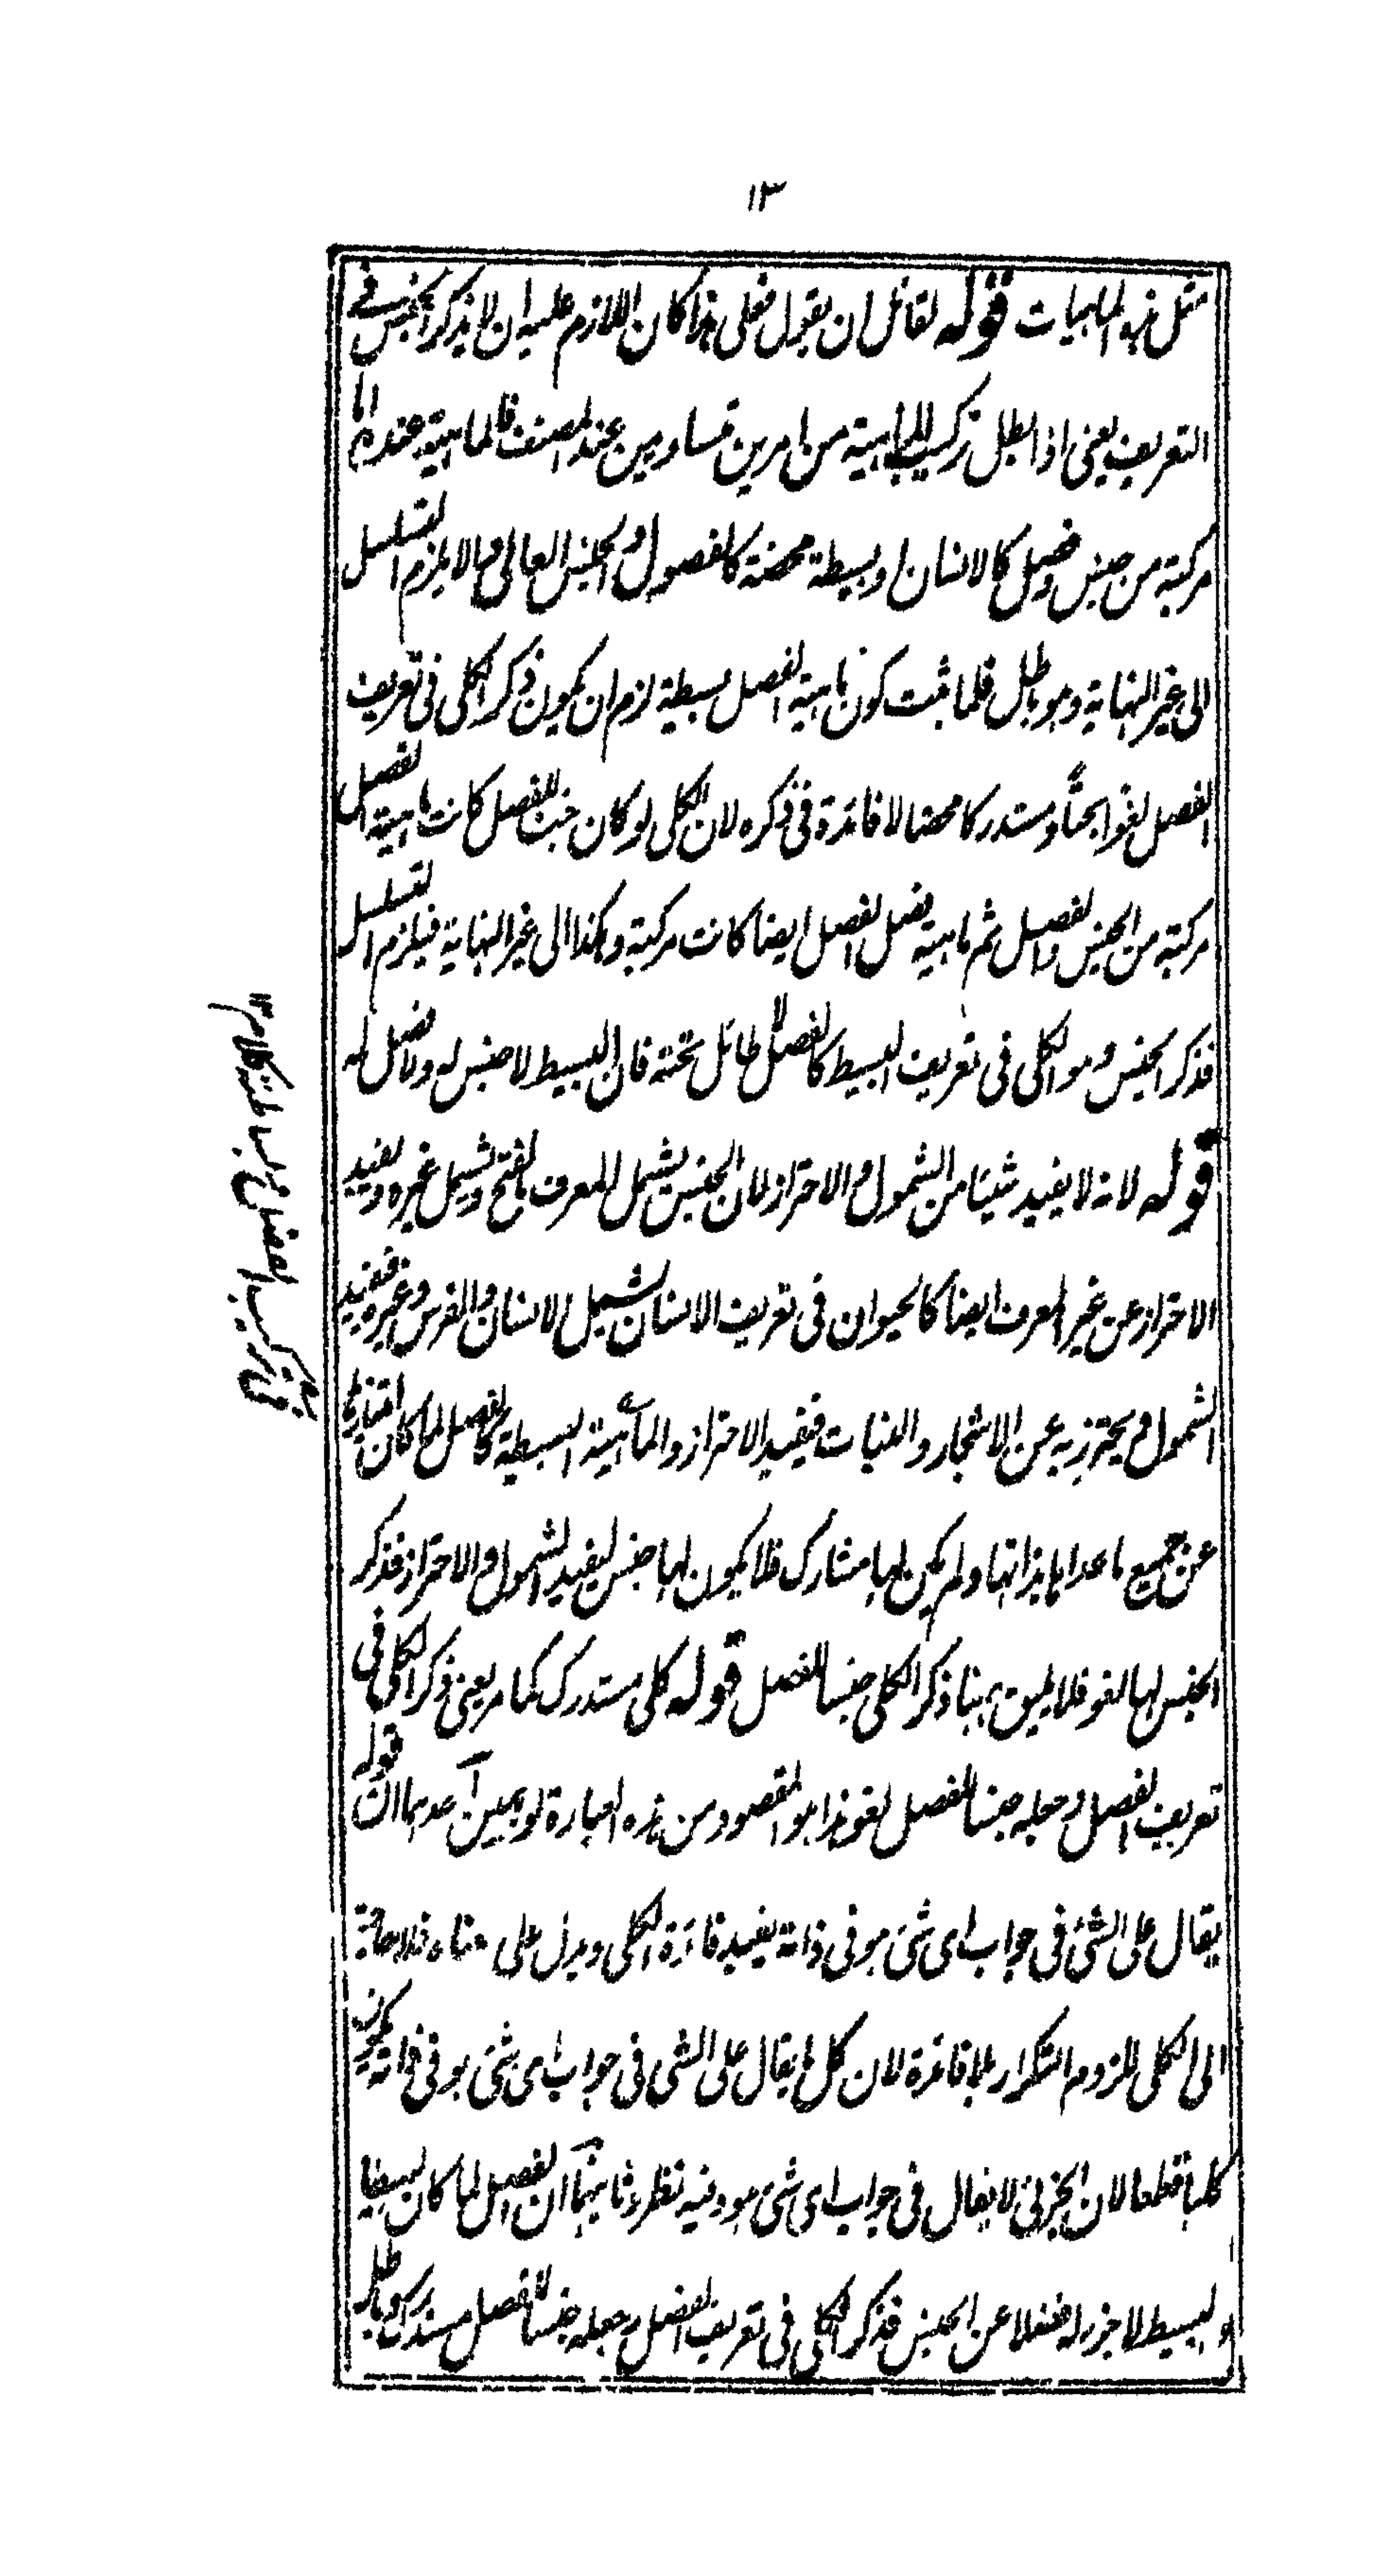 ١٣
مثل هذه الماهيات قوله لقائل ان يقول فعلى هذا كان اللازم عليه ان لا يذكر الجنس فى
التعريف يعنى اذا بطل تركيب الماهية من امرين متساويين عند المصنف فالماهية عنده اما
مركبة من جنس وفصل كالانسان او بسيطة محضة كالفصول والجنس العالى والا يلزم التسلسل
الى غير النهاية وهو باطل فلما ثبت كون ماهية الفصل بسيطة لزم ان يكون ذكر الكلى فى تعريف
الفصل لغوا بحتا ومستدركا محضا لا فائدة فى ذكره لان الكلى لو كان جنسا للفصل كانت ماهية الفصل
مركبة من الجنس والفصل ثم ماهية فصل الفصل ايضا كانت مركبة وهكذا الى غير النهاية فيلزم التسلسل
فذكر الجنس وهو الكلى فى تعريف البسيط كالفصل لا طائل تحته فان البسيط لا جنس له ولا فصل له
قوله لانه لا يفيد شيئا من الشمول والاحتراز لان الجنس يشمل المعرف بالفتح ويشمل غيره ويفيد
الاحتراز عن غير المعرف ايضا كالحيوان فى تعريف الانسان يشمل الانسان والفرس وغيره فيفيد
الشمول ويحترز به عن الاشجار والنبات فيفيد الاحتراز والماهية البسيطة كالفصل لما كان امتيازها
عن جميع ما عداها بذاتها ولم يكن لها مشارك فلا يكون لها جنس ليفيد الشمول والاحتراز فذكر
الجنس لها لغو فلا يليق ههنا ذكر الكلى جنسا للفصل قوله كلى مستدرك كما مر يعنى ذكر الكلى فى
تعريف الفصل وجعله جنسا للفصل لغو هذا هو المقصود من هذه العبارة لوجهين احدهما ان قوله
يقال على الشئ فى جواب اى شئ هو فى ذاته يفيد فائدة الكلى ويدل على معناه فلا حاجة
الى الكلى للزوم التكرار بلا فائدة لان كل ما يقال على الشئ فى جواب اى شئ هو فى ذاته يكون
كليا قطعا لان الجزئى لا يقال فى جواب اى شئ هو وفيه نظر وثانيهما ان الفصل لما كان بسيطا
والبسيط لا جزء له فضلا عن الجنس فذكر الكلى فى تعريف الفصل وجعله جنسا للفصل مستدرك وباطل